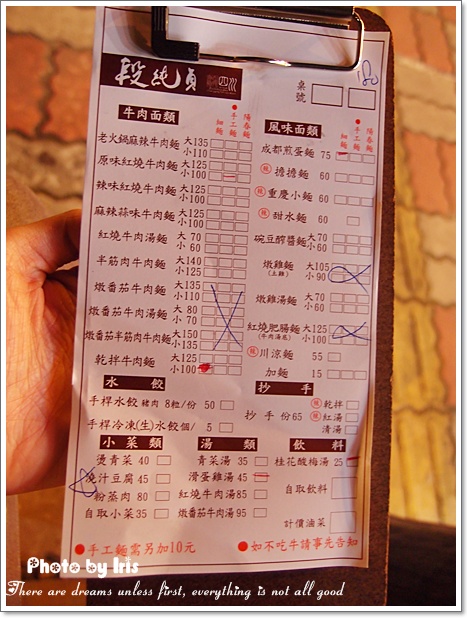 段純貞 四川
桌號
180
牛肉面類
●手工麵
細麵
老火鍋麻辣牛肉麵 大135 小110
原味紅燒牛肉麵 大125 小100
辣味紅燒牛肉麵 大125 小100
麻辣蒜味牛肉麵 大125 小100
紅燒牛肉湯麵 大70 小60
半筋肉牛肉麵 大140 小125
燉番茄牛肉麵 大135 小110
燉番茄牛肉湯麵 大80 小70
燉番茄半筋肉牛肉麵 大150 小135
乾拌牛肉麵 大125 小100
風味面類
陽春麵
●手工麵
細麵
成都煎蛋麵 75
辣 擔擔麵 60
辣 重慶小麵 60
辣 甜水麵 60
碗豆醡醬麵 大70 小60
燉雞麵 (土雞) 大105 小90
燉雞湯麵 大70 小60
紅燒肥腸麵 (牛肉湯底) 大125 小100
辣 川涼麵 55
加麵 15
水餃
手桿水餃 豬肉 8粒/份 50
手桿冷凍(生)水餃 個/ 5
抄手
抄手 份65
辣 乾拌
辣 紅湯
清湯
小菜類
燙青菜 40
澆汁豆腐 45
粉蒸肉 80
自取小菜 35
湯類
青菜湯 35
滑蛋雞湯 45
紅燒牛肉湯 85
燉番茄牛肉湯 95
飲料
桂花酸梅湯 25
自取飲料
計價油菜
●手工麵需另加10元
●如不吃牛請事先告知
Photo by Iris
There are dreams unless first, everything is not all good